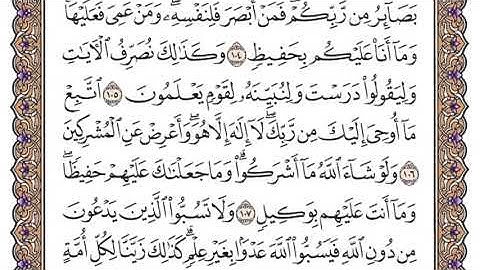 بَصَآئِرُ مِن رَّبِّكُمْ فَمَنْ أَبْصَرَ فَلِنَفْسِهِۦ وَمَنْ عَمِىَ فَعَلَيْهَا
وَمَآ أَنَا۠ عَلَيْكُم بِحَفِيظٍ ١٠٤ وَكَذَٰلِكَ نُصَرِّفُ ٱلْءَايَٰتِ
وَلِيَقُولُوا۟ دَرَسْتَ وَلِنُبَيِّنَهُۥ لِقَوْمٍ يَعْلَمُونَ ١٠٥ ٱتَّبِعْ
مَآ أُوحِىَ إِلَيْكَ مِن رَّبِّكَ ۖ لَآ إِلَٰهَ إِلَّا هُوَ ۖ وَأَعْرِضْ عَنِ ٱلْمُشْرِكِينَ
١٠٦ وَلَوْ شَآءَ ٱللَّهُ مَآ أَشْرَكُوا۟ ۗ وَمَا جَعَلْنَٰكَ عَلَيْهِمْ حَفِيظًا ۖ
وَمَآ أَنتَ عَلَيْهِم بِوَكِيلٍ ١٠٧ وَلَا تَسُبُّوا۟ ٱلَّذِينَ يَدْعُونَ
مِن دُونِ ٱللَّهِ فَيَسُبُّوا۟ ٱللَّهَ عَدْوًۢا بِغَيْرِ عِلْمٍ ۗ كَذَٰلِكَ زَيَّنَّا لِكُلِّ أُمَّةٍ